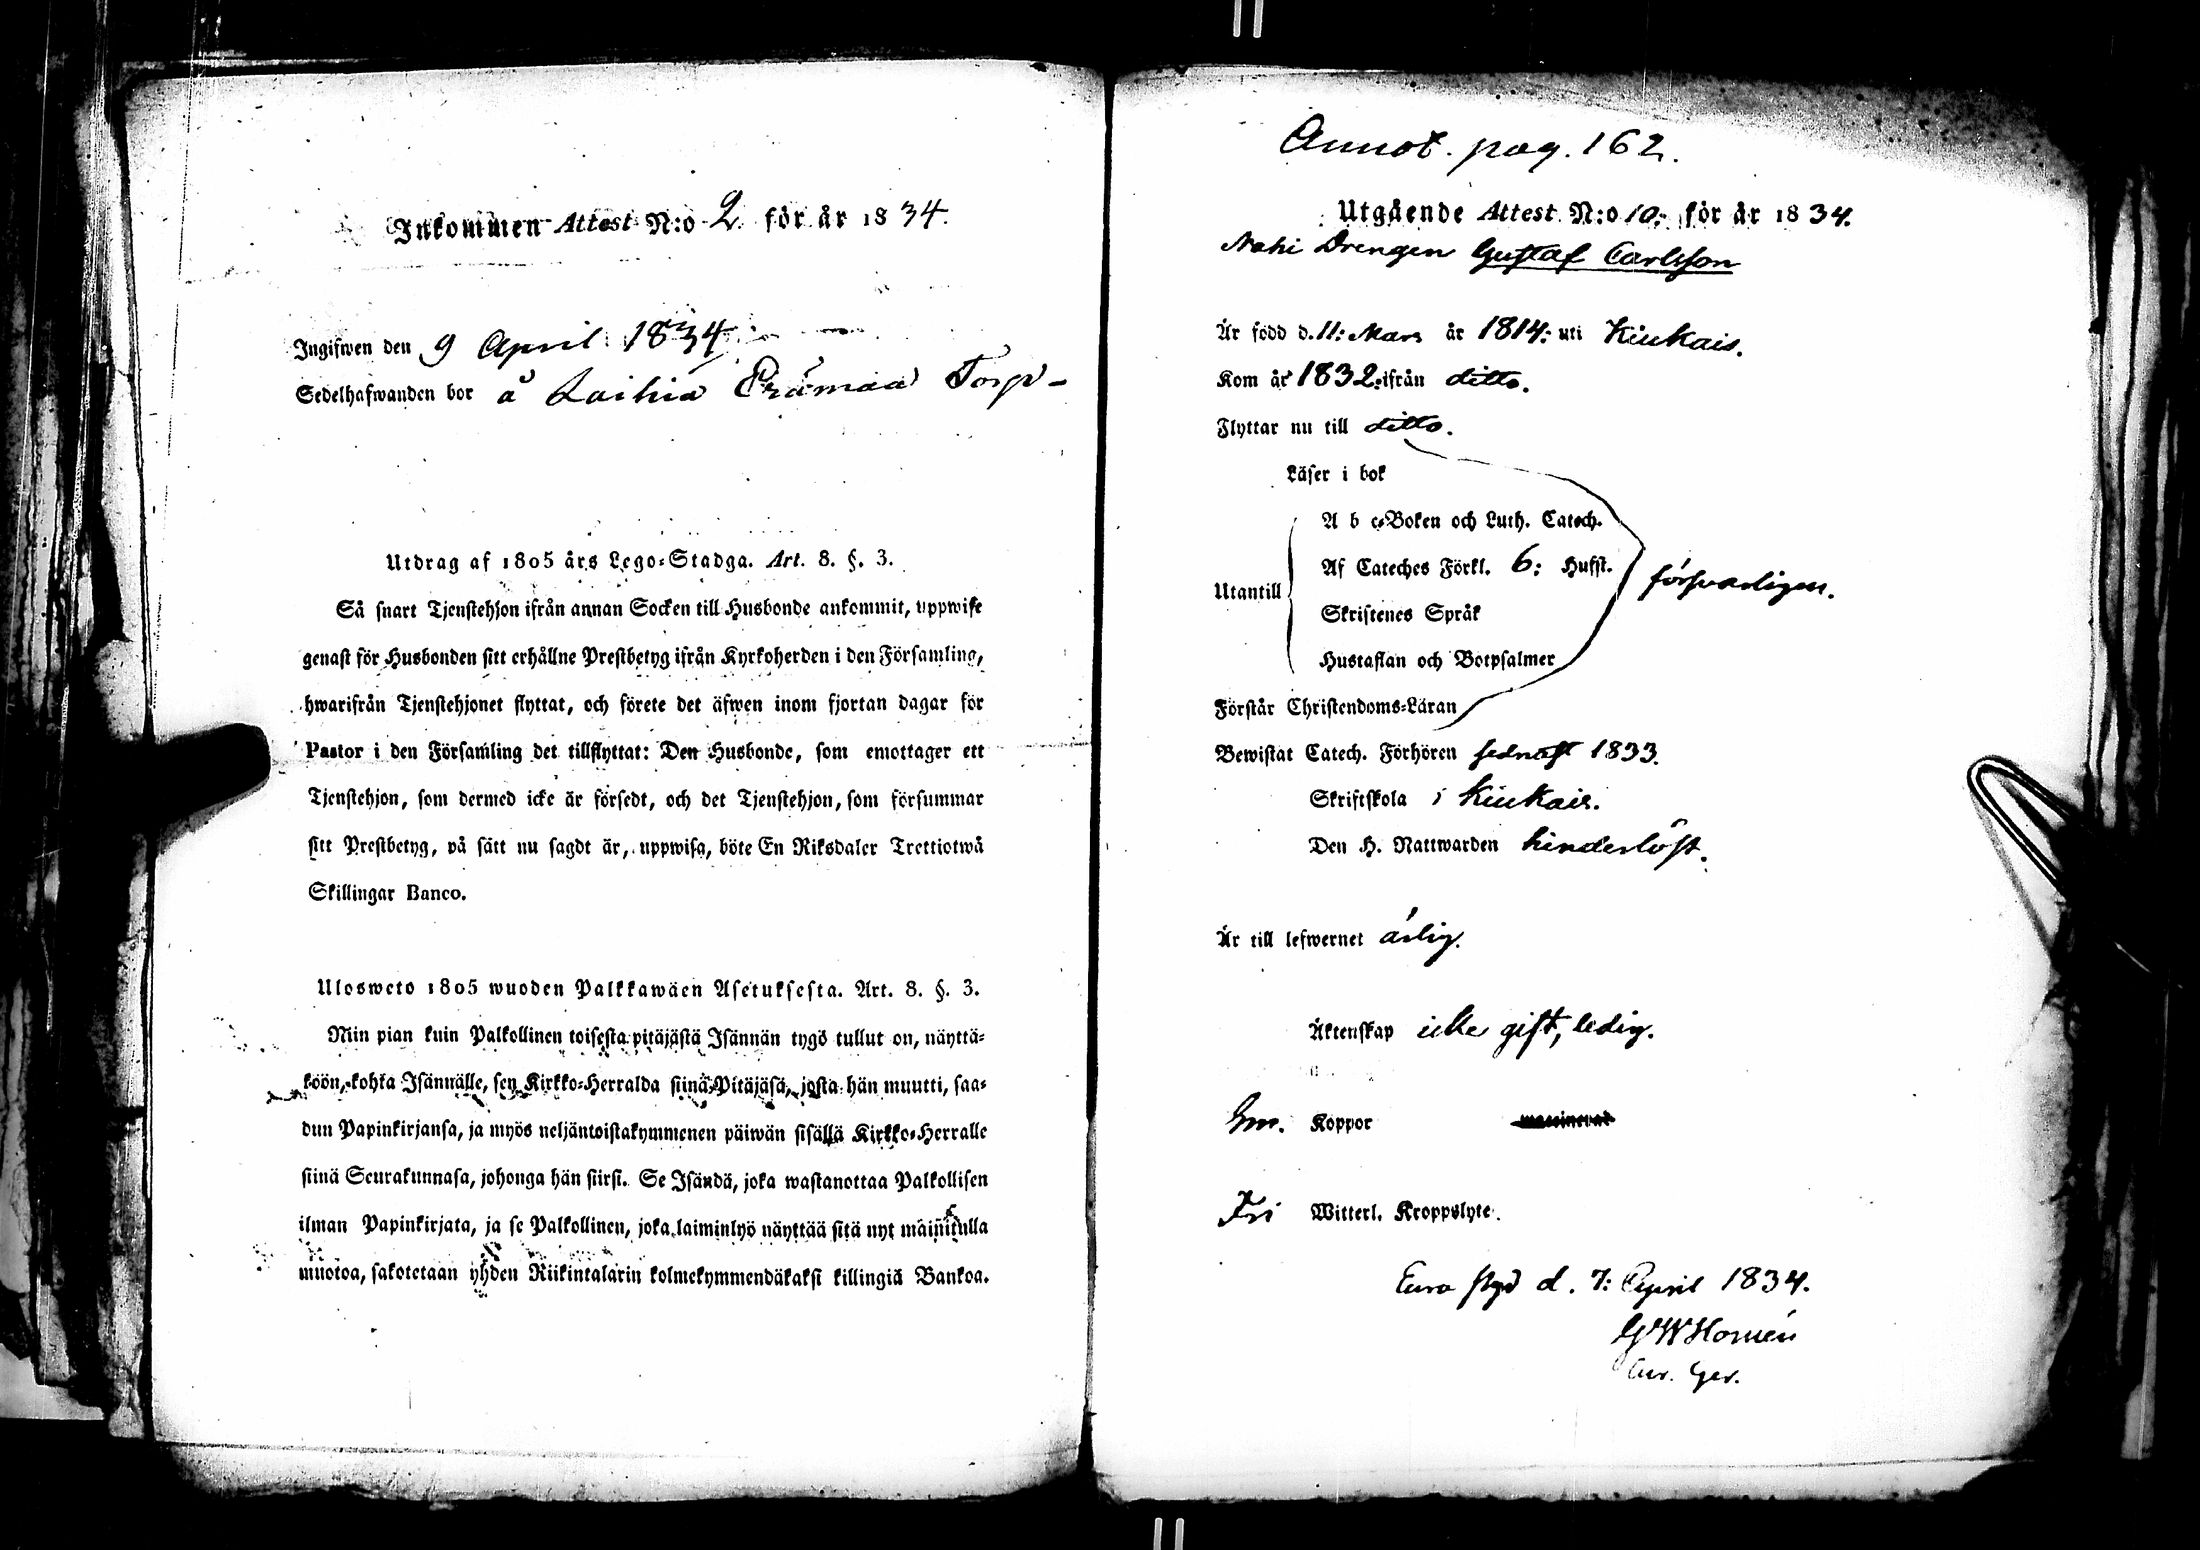 Inkommen Attest N:o 2 för år 1834.
Ingifwen den 9 April 1834
Sedelhafwanden bor å Laihia Erämaa Torp-
Utdrag af 1805 års Lego-Stadga. Art. 8. §. 3.
Så snart Tjenstehjon ifrån annan Socken till Husbonde ankommit, uppwise
genast för Husbonden sitt erhållne Prestbetyg ifrån Kyrkoherden i den Församling,
hwarifrån Tjenstehjonet flyttat, och förete det äfwen inom fjortan dagar för
Pastor i den Församling det tillflyttat: Den Husbonde, som emottager ett
Tjenstehjon, som dermed icke är försedt, och det Tjenstehjon, som försummar
sitt Prestbetyg, på sätt nu sagdt är, uppwisa, böte En Riksdaler Trettiotwå
Skillingar Banco.
Ulosweto 1805 wuoden Palkkawäen Asetuksesta. Art. 8. §. 3.
Niin pian kuin Palkollinen toisesta pitäjästä Isännän tygö tullut on, näyttä-
köön, kohta Isännälle, sen Kirkko-Herralda siinä Pitäjäsä, josta hän muutti, saa-
dun Papinkirjansa, ja myös neljäntoistakymmenen päiwän sisällä Kirkko-Herralle
siinä Seurakunnasa, johonga hän siirsi. Se Isändä, joka wastanottaa Palkollisen
ilman Papinkirjata, ja se Palkollinen, joka laiminlyö näyttää sitä nyt mainitulla
muotoa, sakotetaan yhden Riikintalarin kolmekymmendäkaksi killingiä Bankoa.
Annot. pag. 162.
Utgående Attest N:o 10: för år 1834.
Drengen Gustaf Carlsson
Är född d. 11: Mars år 1814: uti Kiukais.
Kom år 1832: ifrån ditto.
Flyttar nu till ditto.
Läser i bok
A b c-Boken och Luth. Catech.
Af Cateches Förkl. 6: Hufst.
Utantill försvarligen.
Skriftenes Språk
Hustaflan och Botpsalmer
Förstår Christendoms-Läran
Bewistat Catech. Förhören sednast 1833.
Skriftskola i Kiukais.
Den H. Nattwarden hinderlöst.
Är till lefwernet ärlig.
Äktenskap icke gift, ledig.
Koppor
Fri Witterl. Kroppslyte.
Eura d. 7: April 1834.
GWHomén